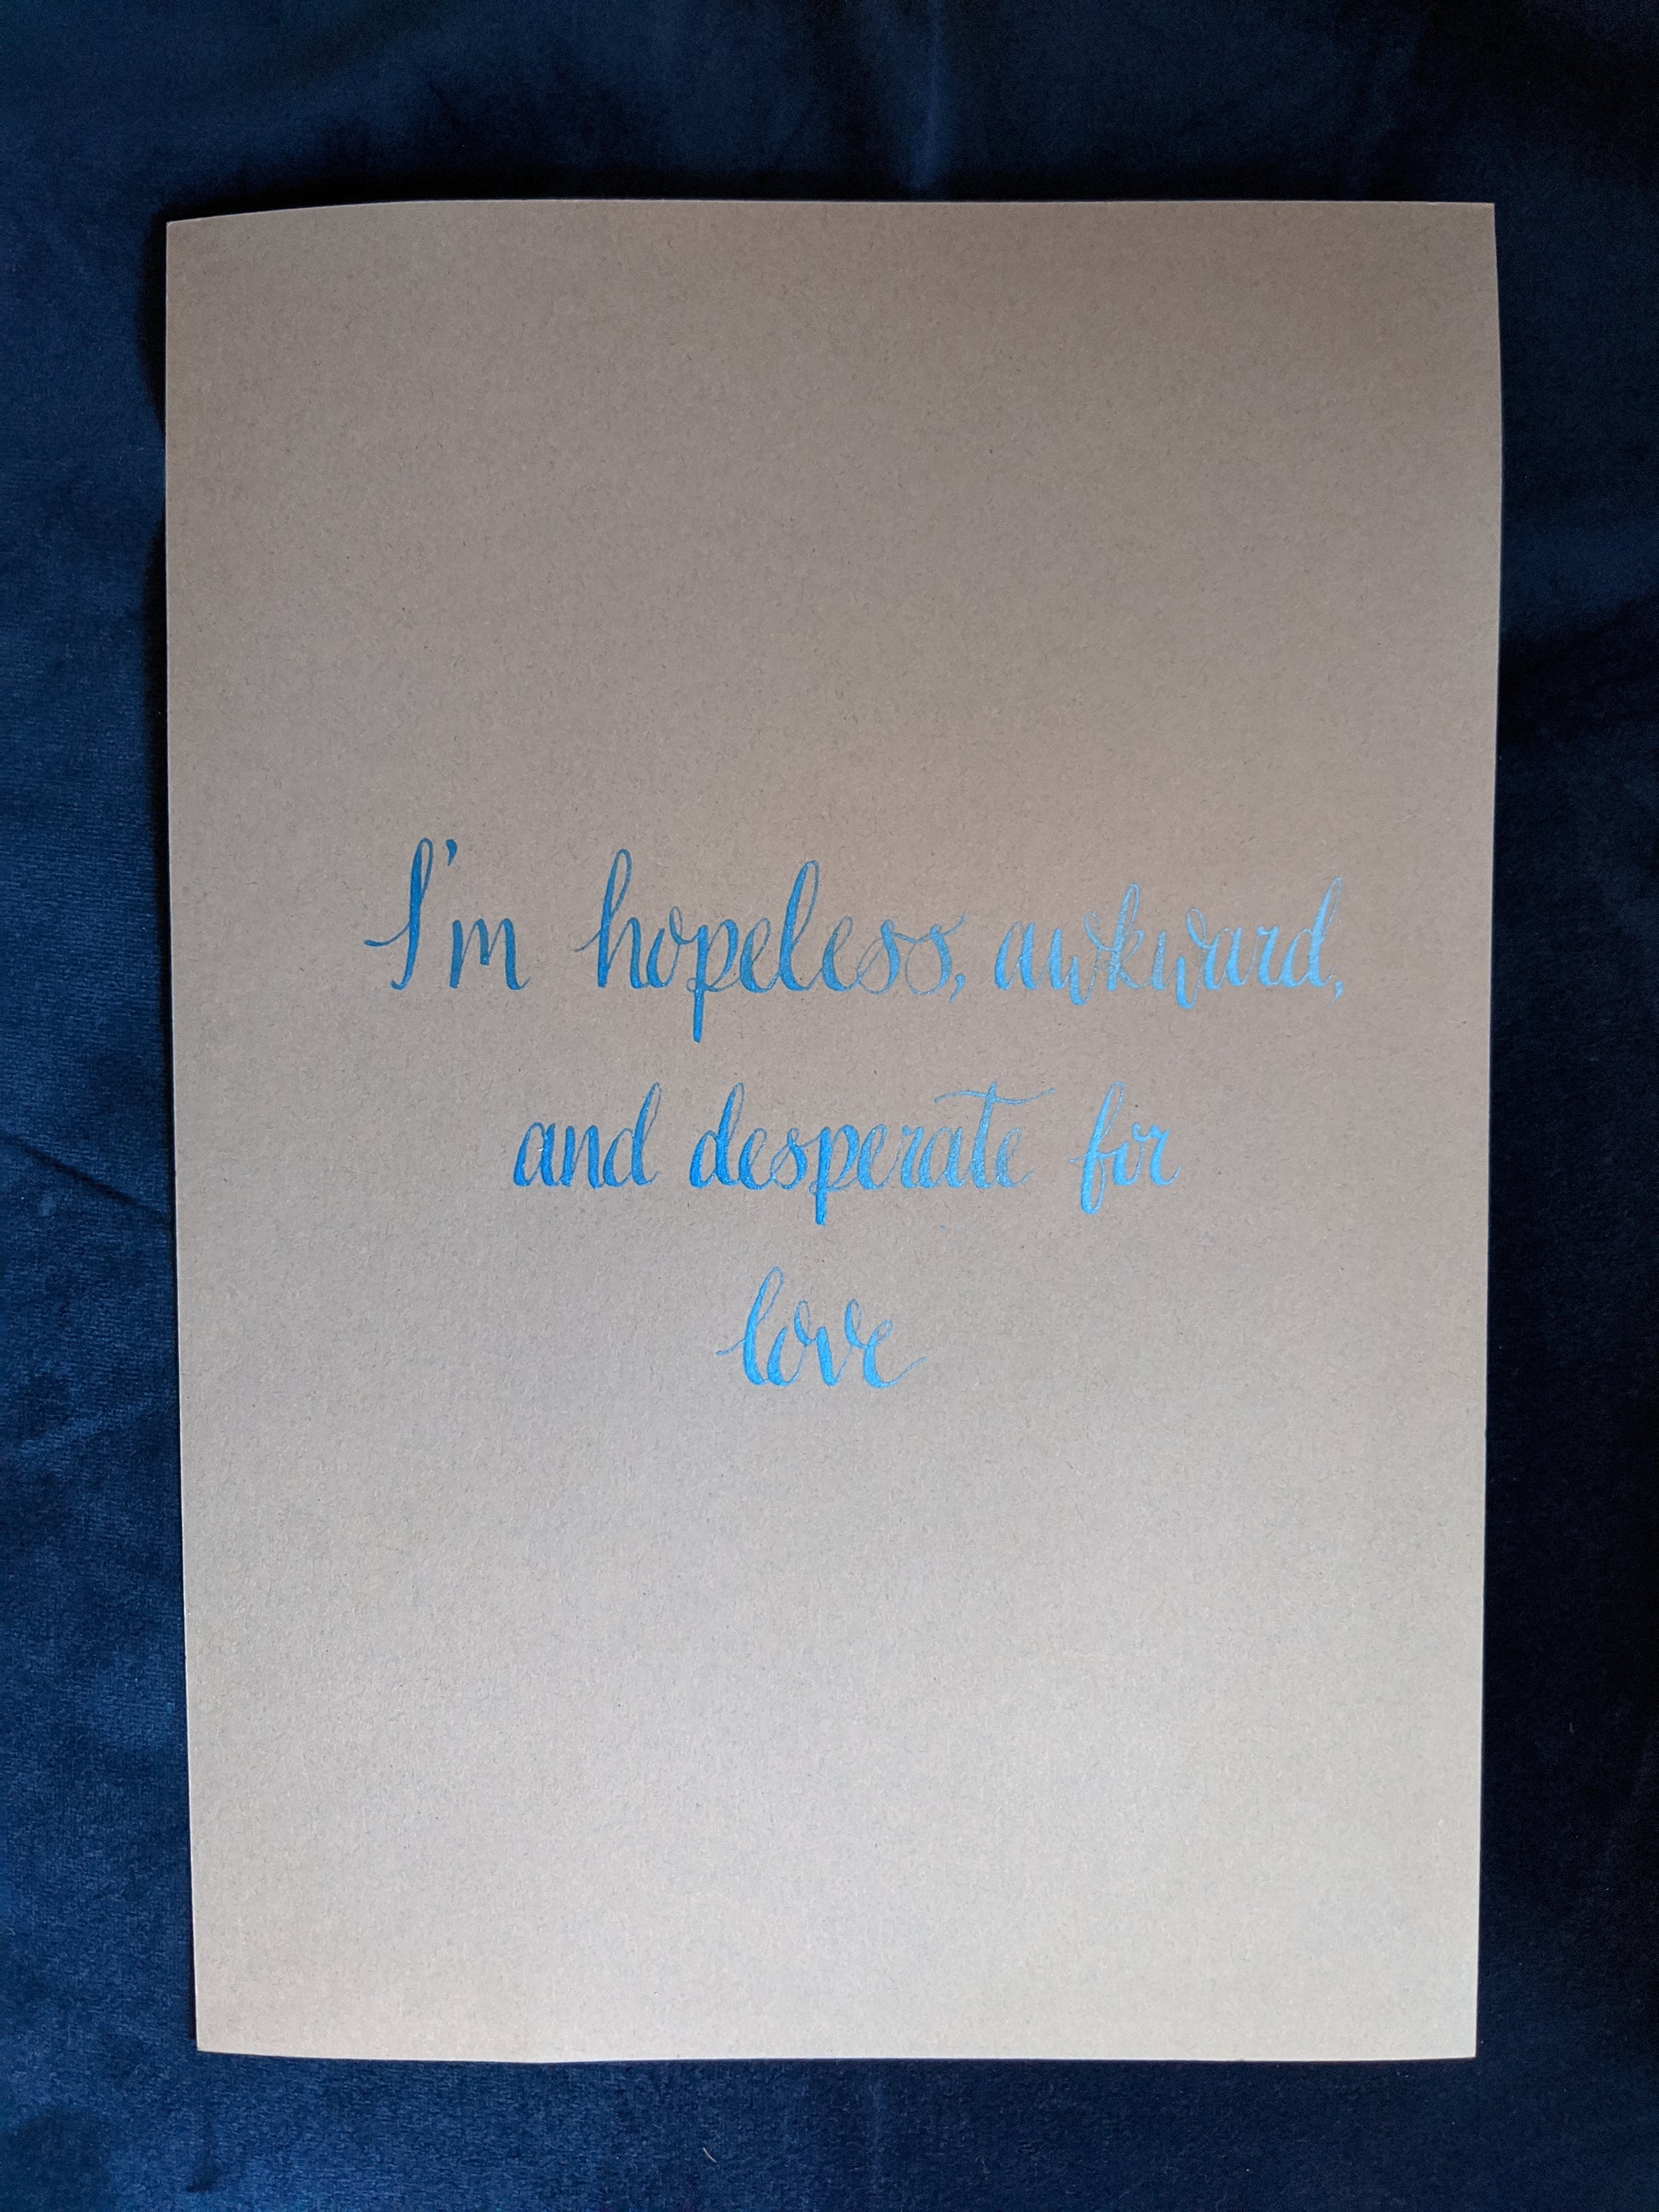 I'm hopeless, awkward,
and desperate for
love